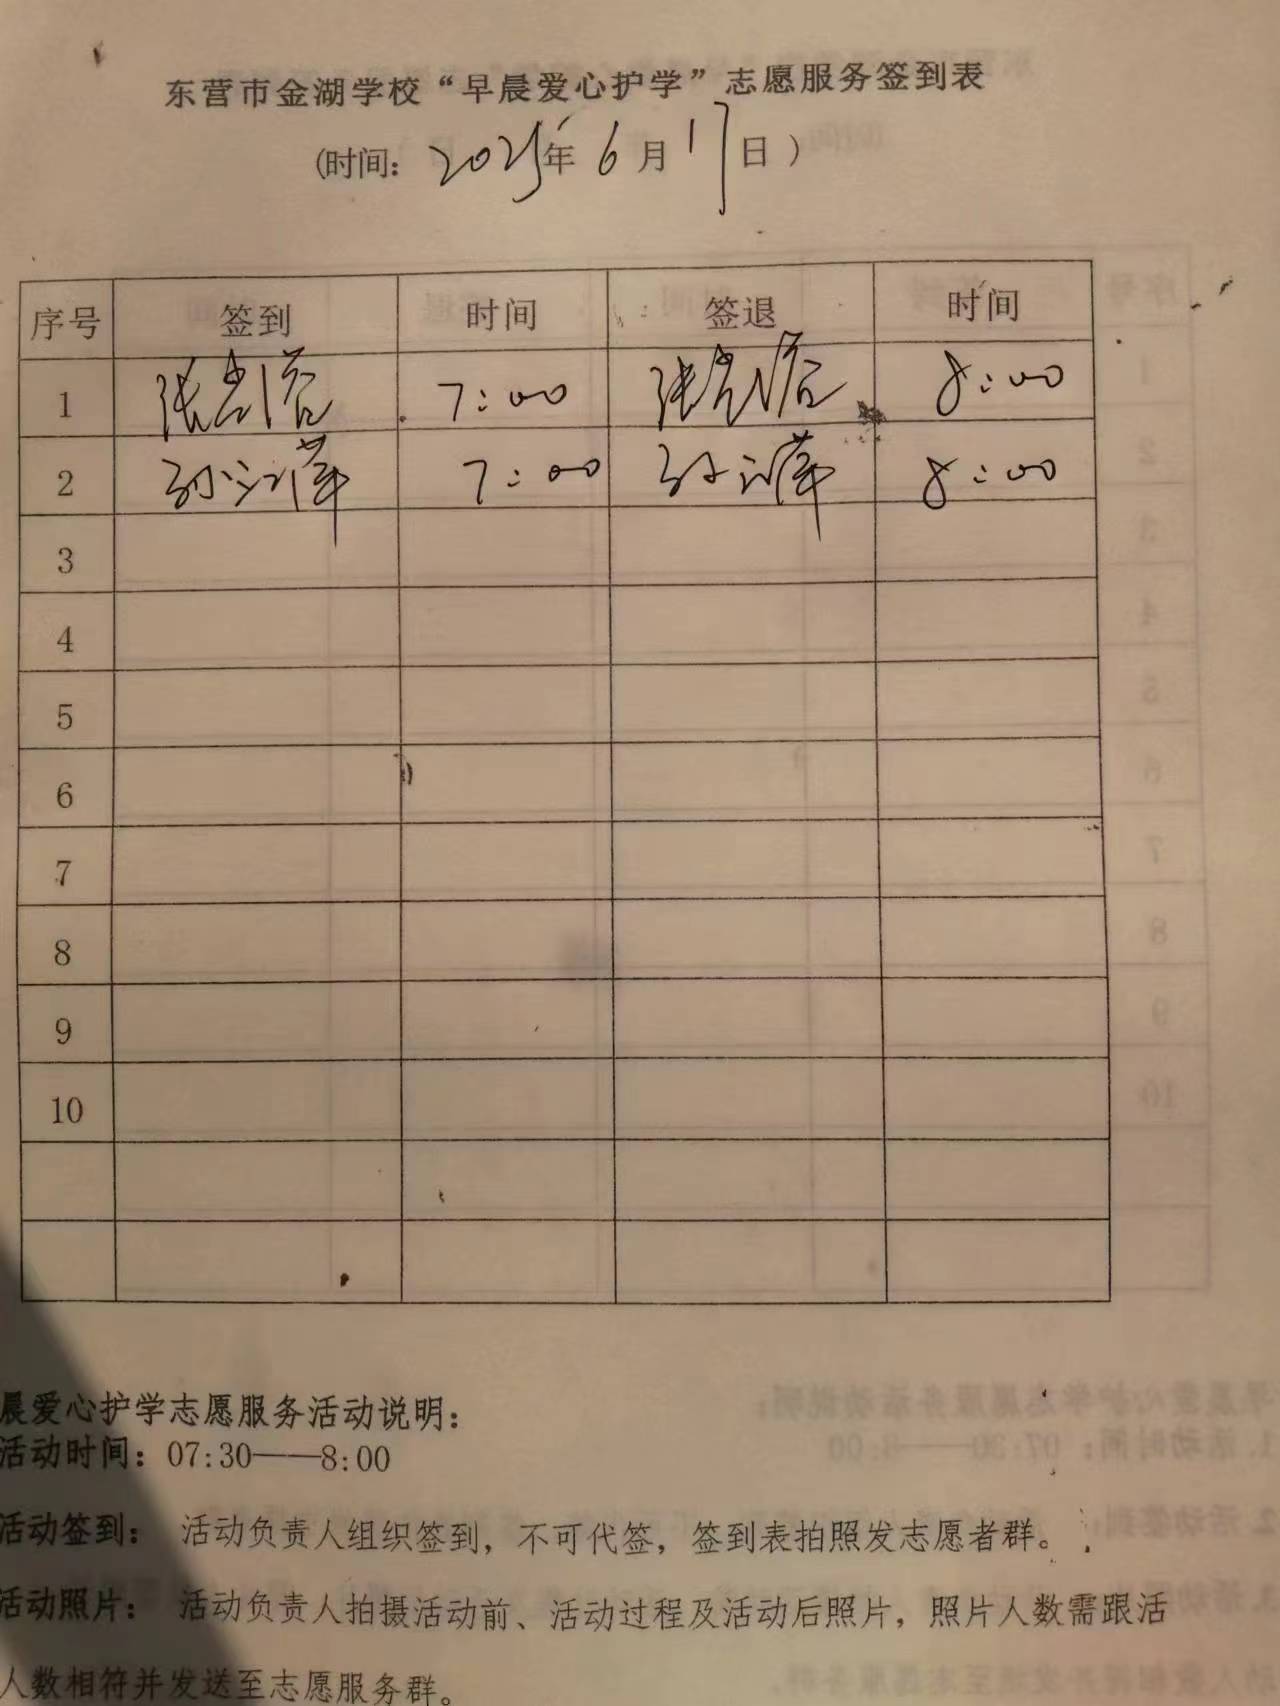 东营市金湖学校“早晨爱心护学”志愿服务签到表
(时间: 2025年 6月17日 )
序号 签到 时间 签退 时间
1 张 7:00 张 8:00
2 孙 7:00 孙 8:00
3
4
5
6
7
8
9
10
晨爱心护学志愿服务活动说明:
活动时间: 07:30——8:00
活动签到: 活动负责人组织签到, 不可代签, 签到表拍照发志愿者群。
活动照片: 活动负责人拍摄活动前、活动过程及活动后照片, 照片人数需跟活
人数相符并发送至志愿服务群。